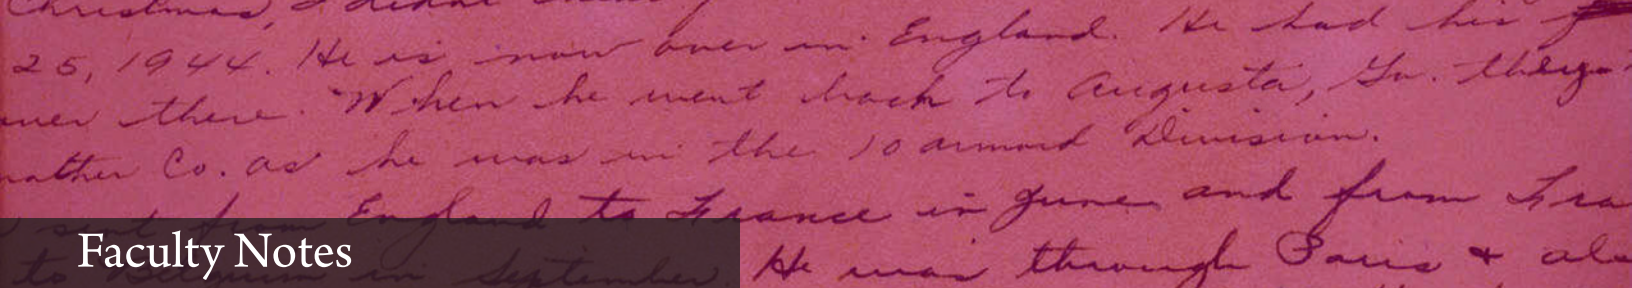 Christmas, I didnt
25, 1944. He is now over in England. He had his
over there. When he went back to Augusta, Ga. they
nather Co. as he was in the 10 armord Division.
sent from England to France in June and from Fra
to Belgium in September. He was through Paris + als
Faculty Notes